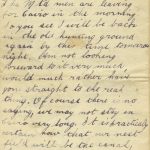 The M/ta men are leaving
for Cairo in the morning
so you see I will be back
in the old hunting ground
again by the time tomorrow
night. Am not looking
forward to it very much
would much rather have
you straight to the real
thing. Of course there is no
saying we may not stay in
very long. It is practically
certain how that our next
will be the canal,